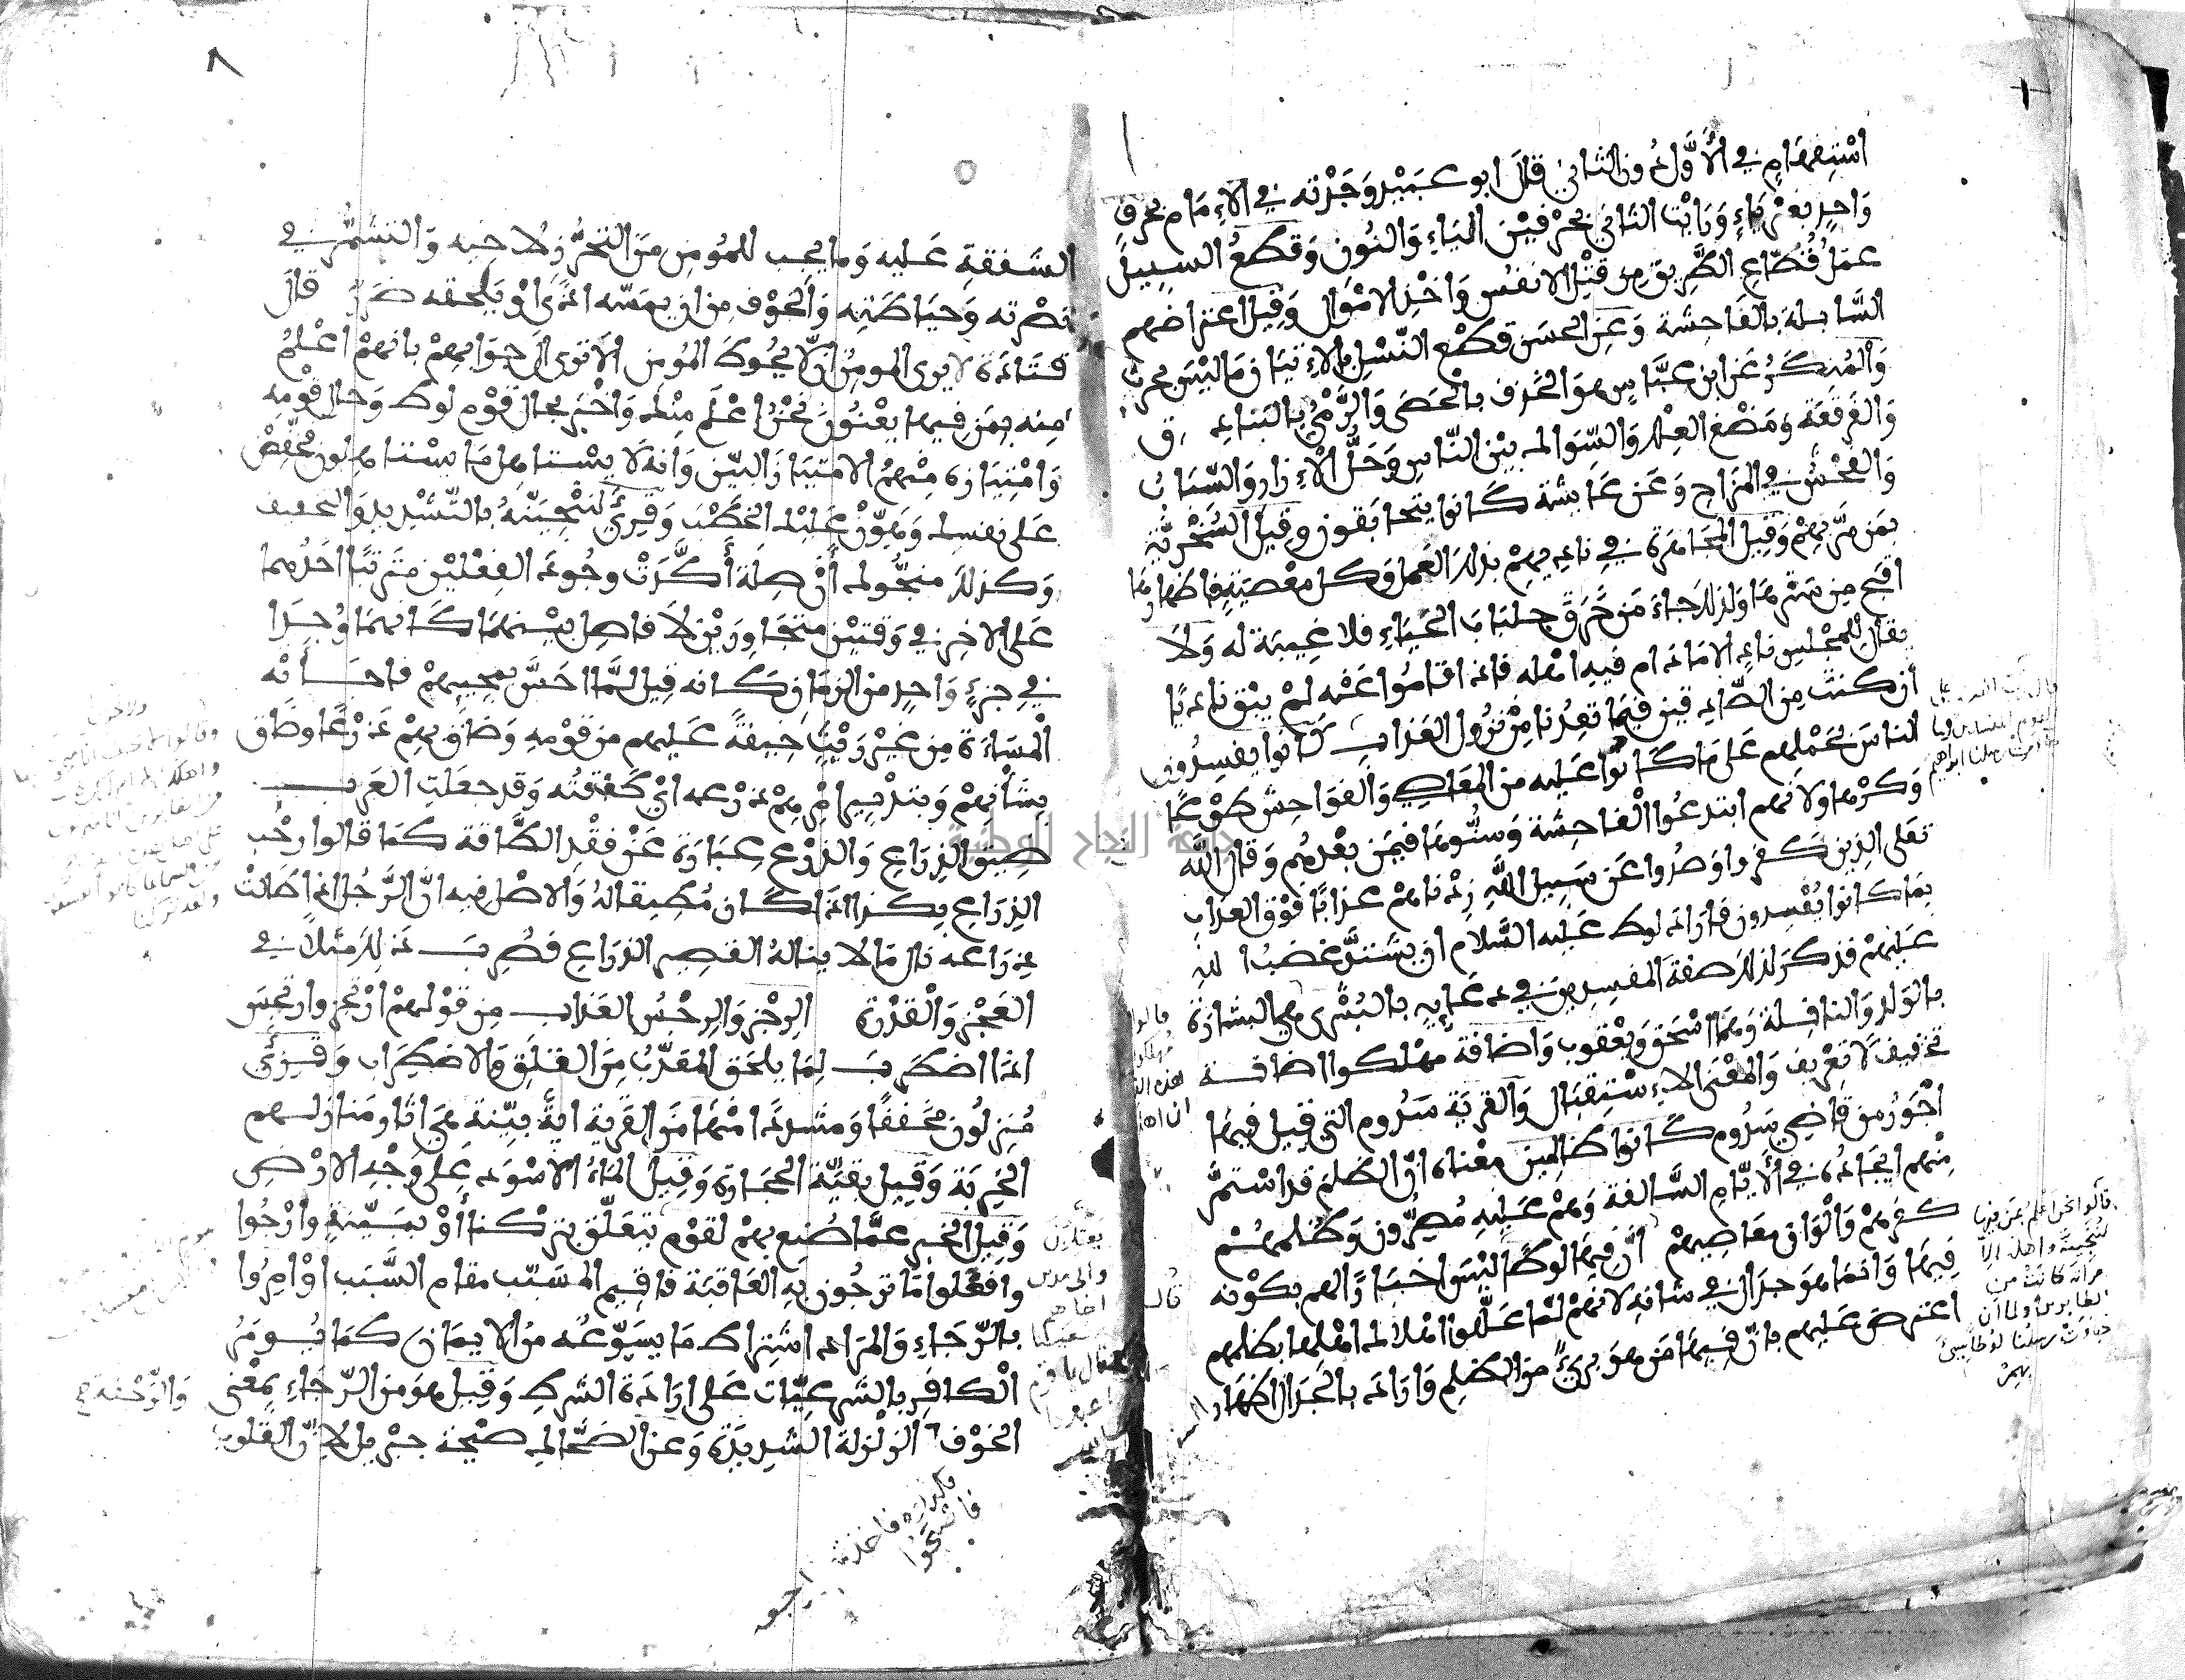 اسْتِفهَامٍ في الأوَّل دُون الثاني قالَ ابو عبَيْد وَجَدْته في الامَام بحرفٍ
وَاحِدٍ بغيْر يَاءٍ وَرَايْت الثاني بحرْفيْن اليَاءِ وَالنُون وَقطعُ السبِيل
عمَلُ قُطّاعِ الطَّرِيق مِن قتْل الانفُس وَاخْذِ الامْوَال وَقِيل اعتراضهم
السَّابلة بالفَاحِشَة وَعن الحسَن قطْع النّسْل بالاِتيَان مَا ليْسَ بحرث
وَالمُنكَرُ عَن ابن عبَّاسٍ هوَ الخَذف بالحصَى وَالرَّمْيُ بالبنادِق
وَالفرقعَة وَمَضْغ العِلك وَالسّوَاك بيْن النّاسِ وَحَلُّ الاِزار وَالسّبَابُ
وَالفحْشُ في المزَاح وَعَن عَايشَة كَانوا يتحابَقون وقيل السُّخْرِيَّة
بمَن مرَّ بهِمْ وَقِيل المجَاهَرة في ناديهِمْ بذلك العَمل وَكل معْصيَةٍ فاظهارهَا
اقبَح مِن سَتْرهَا وَلذلكَ جاءَ مَن خَرَقَ جلبَابَ الحَيَاءِ فلا غِيبَة له وَلا
يقال للمجْلس نادٍ الا مَا دَام فيه اهله فاذا قامُوا عنْه لمْ يبْق نادِيًا
أن كنتَ مِن الصَّادِقين فيمَا تعِدُنا مِنْ نزُول العَذاب كَانوا يفسِدُون
الناسَ بحَمْلهم عَلى مَا كَانوا عَليه من المعَاصي وَالفوَاحش طوْعًا
وَكرْها ولانهم ابتدعُوا الفاحِشة وَسنُّوهَا فيمَن بعْدهُم وَقال اللَّه
تعَلى الذِين كَفروا وَصدُّوا عَن سَبِيل اللَّهِ زِدْناهمْ عذابًا فوْق العذاب
بمَا كانوا يُفسِدون فارَادَ لوط عَليه السَّلام ان يشتدَّ غضبُ الله
عَليْهمْ فذكرَ لذلكَ صفة المفسدِين في دعَايِه بالبُشْرى هي البشارَة
بالوَلد وَالنافِلة وَهمَا اسْحق وَيعْقوب وَاضافة مهْلكوا اضافة
تخفيف لا تَعْريف وَالمعْنى الاِسْتِقبَال وَالقرْيَة سَدُوم التي قِيل فيهَا
اجْوَرُ من قاضِي سَدُوم كَانوا ظالِمين معْناه انّ الظلمَ قد اسْتمَرَّ
مِنْهم ايجَادُه في الأيّامِ السَّالفة وَهمْ عَليْهِ مُصِرُّون وَظلمهُمْ
كفرهمْ وَالوَان معَاصيهمْ انَّ فيهَا لوطًا ليْسَ اخبَارًا لهم بكوْنه
فِيهَا وَانمَا هوَ جدَال في شانهِ لانهمْ لمّا عَلَّلوا اهْلاك اهْلهَا بظلمهم
اعترضَ عَليهم بانّ فِيهَا مَن هوَ بريءٌ من الظلم وَارَادَ بالجدَال اظهَار
الشفقةِ عَليه وَما يجب للمُومن منَ التحزُّن لاخيه وَالتشمُّر في
نصْرته وَحيَاطته وَالخوْف من ان يمَسّه اذًى اوْ يَلحقه ضَررٌ قالَ
قتَادَة لا يرى المومنُ انْ لا يحُوط المُومن الا ترى الى جوَابهمْ بانهمْ اعْلمُ
منه بمَن فِيها يعْنُون نحْنُ اعْلم مِنْك وَاخْبَر بحال قوْم لوط وَحال قوْمِه
وَامْتِيَازه مِنْهمُ الامتيَازَ البيِّن وَانه لا يسْتاهل مَا يسْتاهلون فخفِّضْ
عَلى نفسك وَهوِّنْ عَليْك الخَطْبَ وَقرِئَ لنُنجيَنّهُ بالتشْديد وَالتخفيف
وَكذلكَ منجُّوك أَنْ صِلَة أَكَّدَتْ وجُودَ الفِعْليْن مترتِّبًا احَدُهما
عَلى الاخر في وَقتيْن متجَاوِرَيْن لا فاصِل بيْنهمَا كَانهمَا وُجِدَا
في جزءٍ وَاحِدٍ منَ الزمَان كَانه قِيل لمَّا احَسَّ بمجِيئهمْ فاجَأتْه
المسَاءَة مِن غيْر رَيْثٍ خِيفةً عَليهم من قوْمهِ وَضاقَ بهمْ ذَرْعًا وضاق
بِشَأْنهمْ وَبتدْبِير أمْرهِمْ ذرْعه ايْ طَاقته وَقد جعَلت العَرب
ضِيق الذِراع وَالذرْع عِبارَة عَنْ فقْد الطَّاقة كمَا قالوا رحْب
الذِرَاعِ بكذا اذا كَان مُطيقا لهُ وَالاصْل فيه انّ الرَّجُل اذا طَالتْ
ذِرَاعه نال مَا لا ينالهُ القصِير الذرَاع فضُرِب ذَلِكَ مثلاً في
العَجْز وَالقدْرة الرِجْز وَالرِجْسُ العَذاب مِن قوْلهمْ ارْتجزَ وارتجسَ
اذا اضطَرَب لِمَا يلحَق المعَذَّبَ مِنَ القلَق وَالاضطِرَاب وَقُرِئَ
مُنزِلُون مخففًا وَمشددًا منهَا منَ القرْيَة ايةً بيِّنة هي اثار مَنازلهم
الخَرِبَة وَقِيل بقيَّة الحجَارة وَقِيل المَاءُ الاسْوَد عَلى وَجْهِ الارْضِ
وَقيل الخبر عمَّا صُنع بهمْ لقوْم يتعَلّق بترَكْنا أوْ ببَيِّنة وارْجُوا
وافعَلوا مَا ترجُون به العَاقبَة فاقيم المسَبّب مقام السَّبَب اوْ امِرُوا
بالرّجَاءِ وَالمرَاد اشتراط مَا يسَوّغُه من الايمَان كمَا يُومَرُ
الكافِر بالشّرعيّات عَلى ارَادَة الشّرط وَقيل هوَ من الرّجَاءِ بمعْنى
الخوْف الزلزلة الشدِيدَة وَعن الضّحّاك صيْحة جبريل لانّ القلوب
وَالرَّجْفة
قالوا نحن اعلم بمن فيها
لننجينّه واهله الّا
مراته كانت من
الغابرين ولما أن
جاءَت رسلنا لوطا سِيءَ
بهمْ